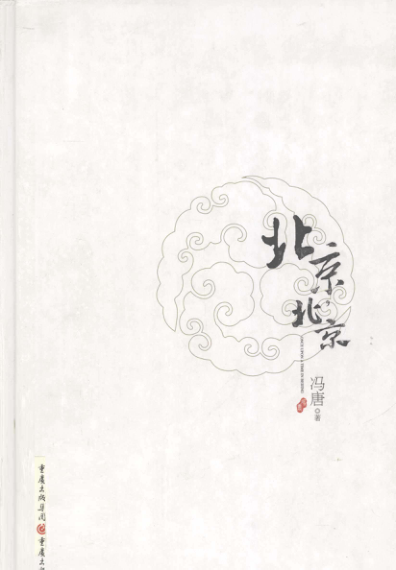 北京
北京
冯唐 著
重庆出版集团
重庆出版